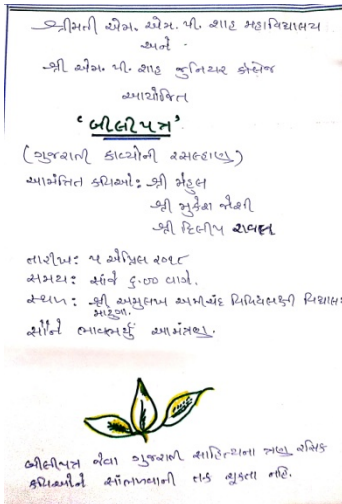 શ્રીમતી એમ. એમ. પી. શાહ મહાવિદ્યાલય
અને
શ્રી એમ. પી. શાહ જુનિયર કોલેજ
આયોજિત
'બીલીપત્ર'
(ગુજરાતી કાવ્યોની રસલ્હાણ)
આમંત્રિત કવિઓ: શ્રી મેહુલ
શ્રી મુકેશ જોશી
શ્રી દિલીપ રાવલ
તારીખ: ૫ એપ્રિલ ૨૦૧૮
સમય: સાંજે ૬.૦૦ વાગે.
સ્થળ: શ્રી અમુલખ અમીચંદ વિવિધલક્ષી વિદ્યાલય
માટુંગા.
સૌને ભાવભર્યું આમંત્રણ.
બીલીપત્ર જેવા ગુજરાતી સાહિત્યના ત્રણ રસિક
કવિઓને સાંભળવાની તક ચૂકતા નહિ.